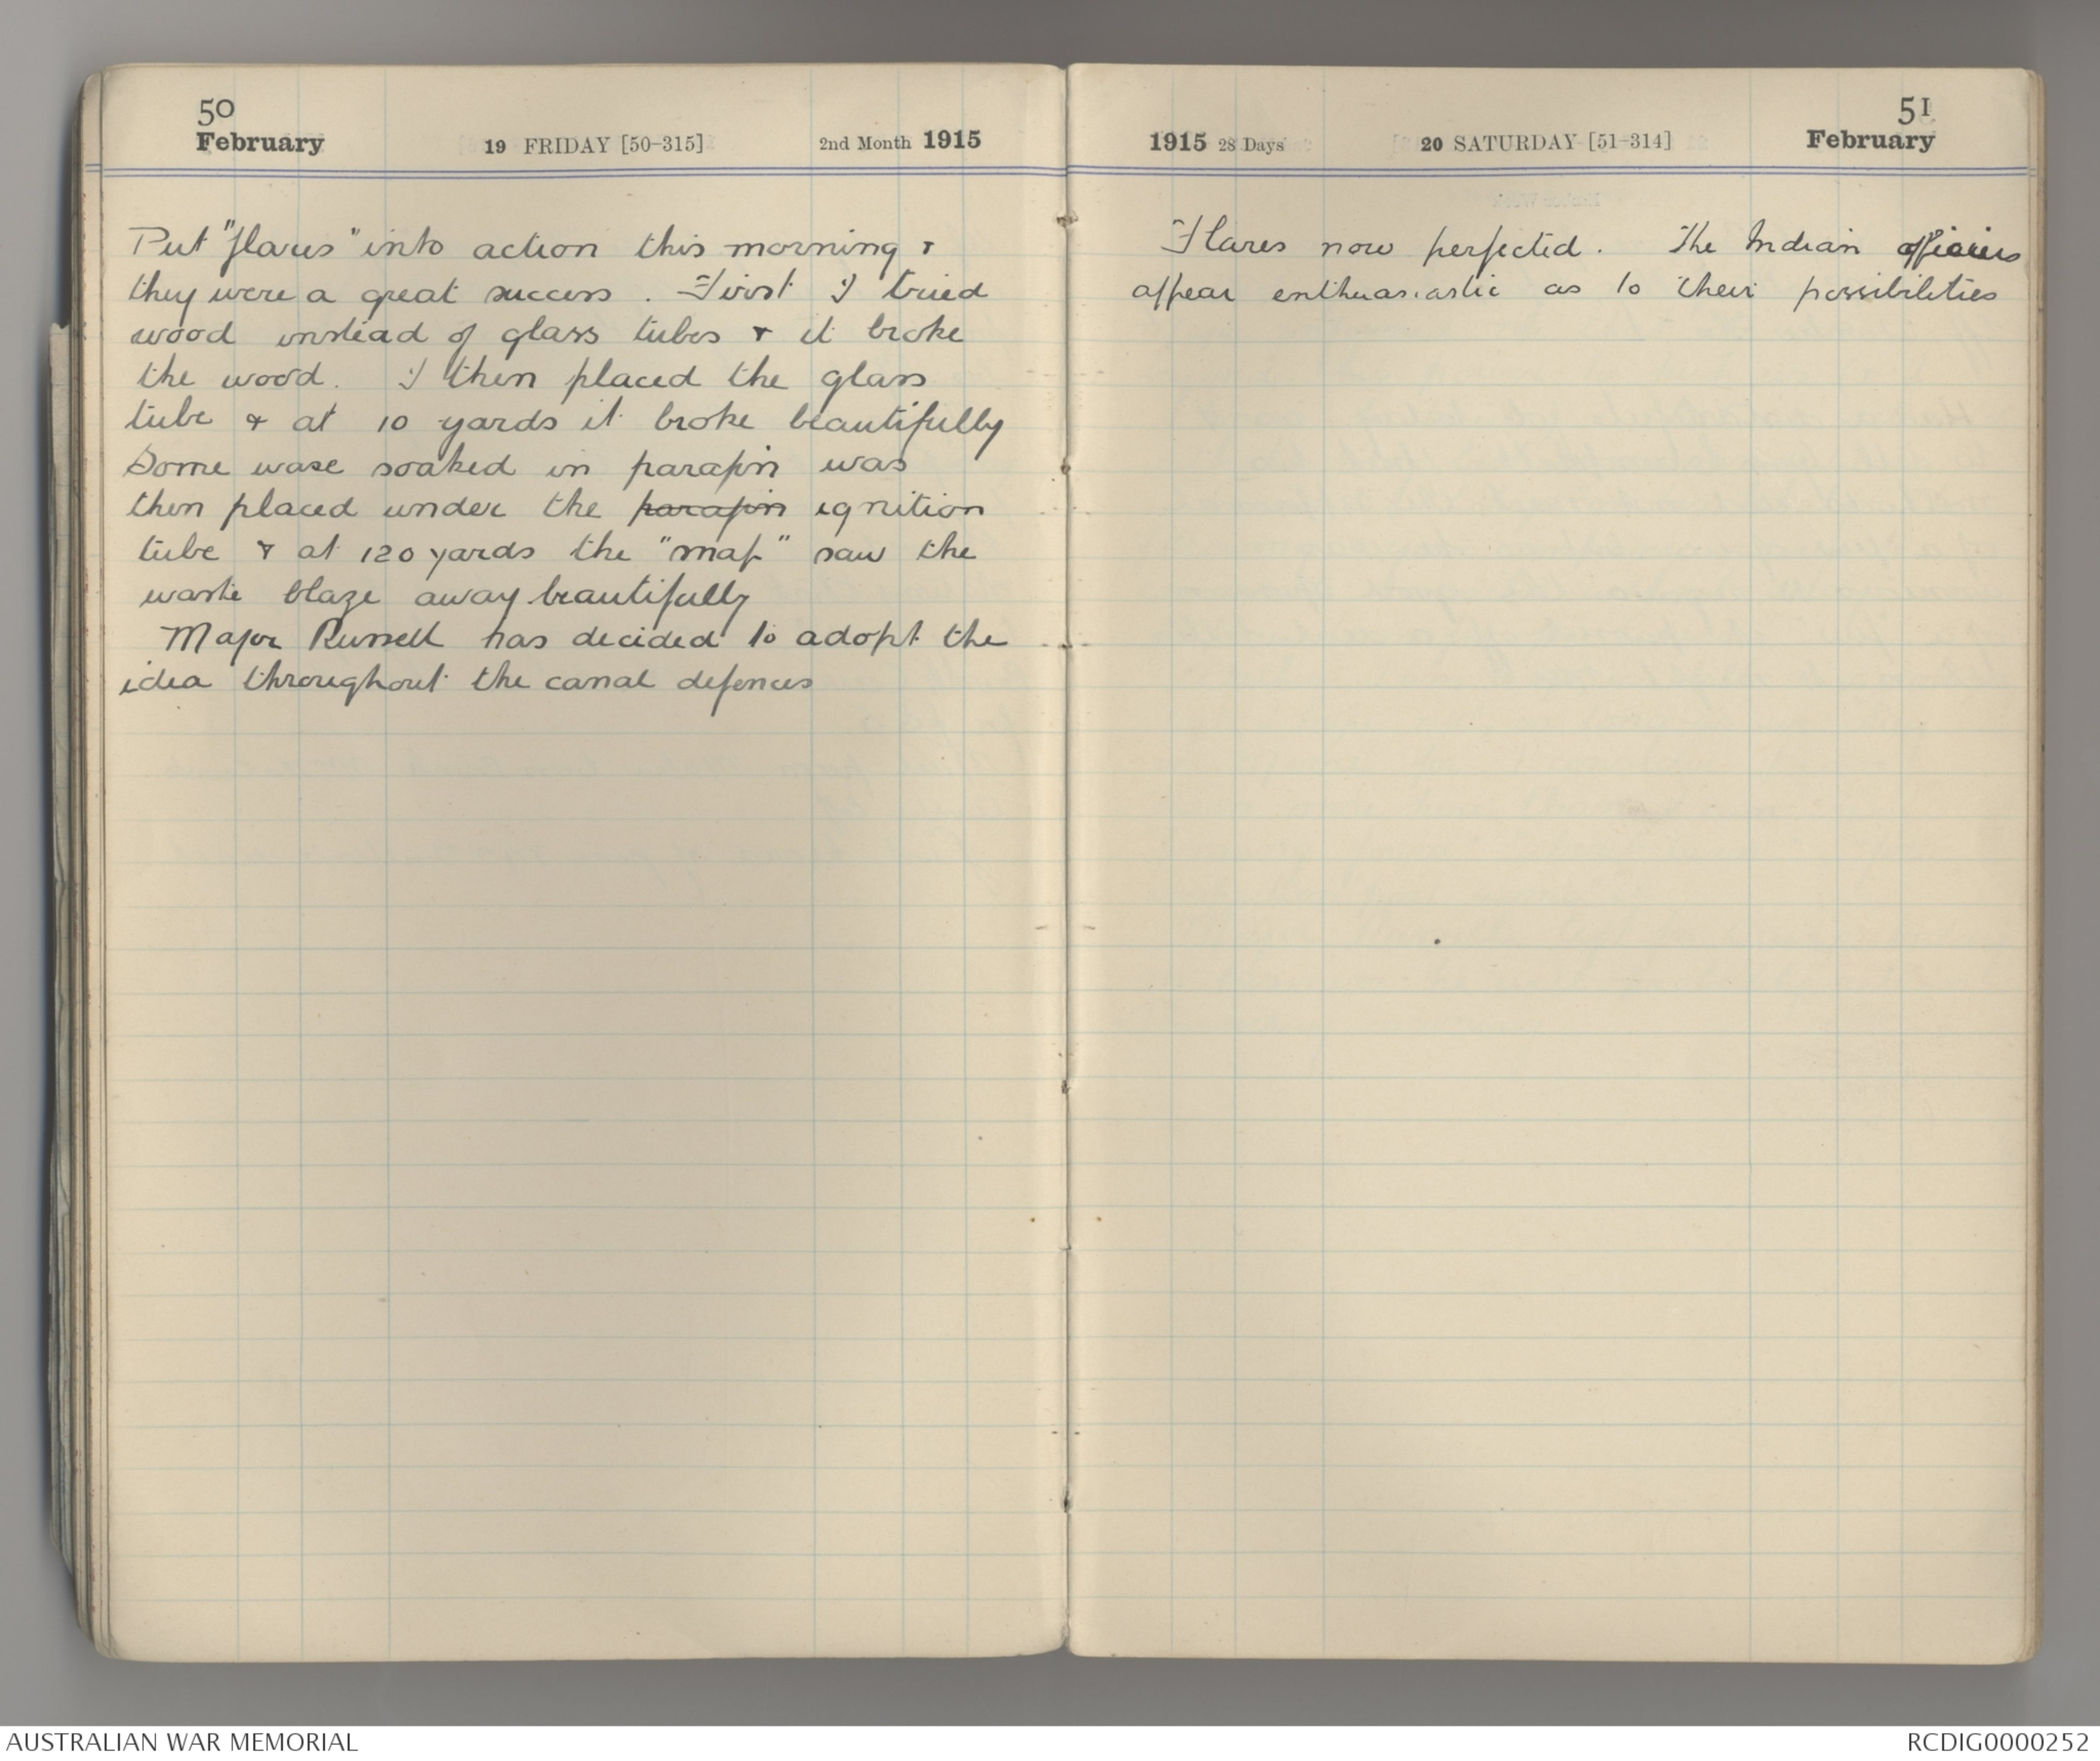 50
February 19 FRIDAY [50-315] 2nd Month 1915
Put "flares" into action this morning &
they were a great success. First I tried
wood instead of glass tubes & it broke
the wood. I then placed the glass
tube & at 10 yards it broke beautifully
Some wase soaked in parafin was
then placed under the parafin ignition
tube & at 120 yards the "map" saw the
waste blaze away beautifully
Major Russell has decided to adopt the
idea throughout the canal defences
51
1915 28 Days 20 SATURDAY [51-314] February
Flares now perfected. The Indian officers
appear enthusiastic as to their possibilities
AUSTRALIAN WAR MEMORIAL
RCDIG0000252